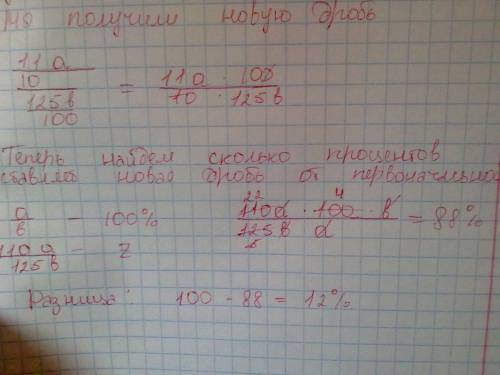 Мы получили новую дробь
11а/10 / 125в/100 = 11а · 100 / 10 · 125в
Теперь найдем сколько процентов
составила новая дробь от первоначальной
а/в — 100%
110а/125в — Z
110а · 100 · в / 125в · а = 88%
22 4 5
Разница: 100 - 88 = 12%